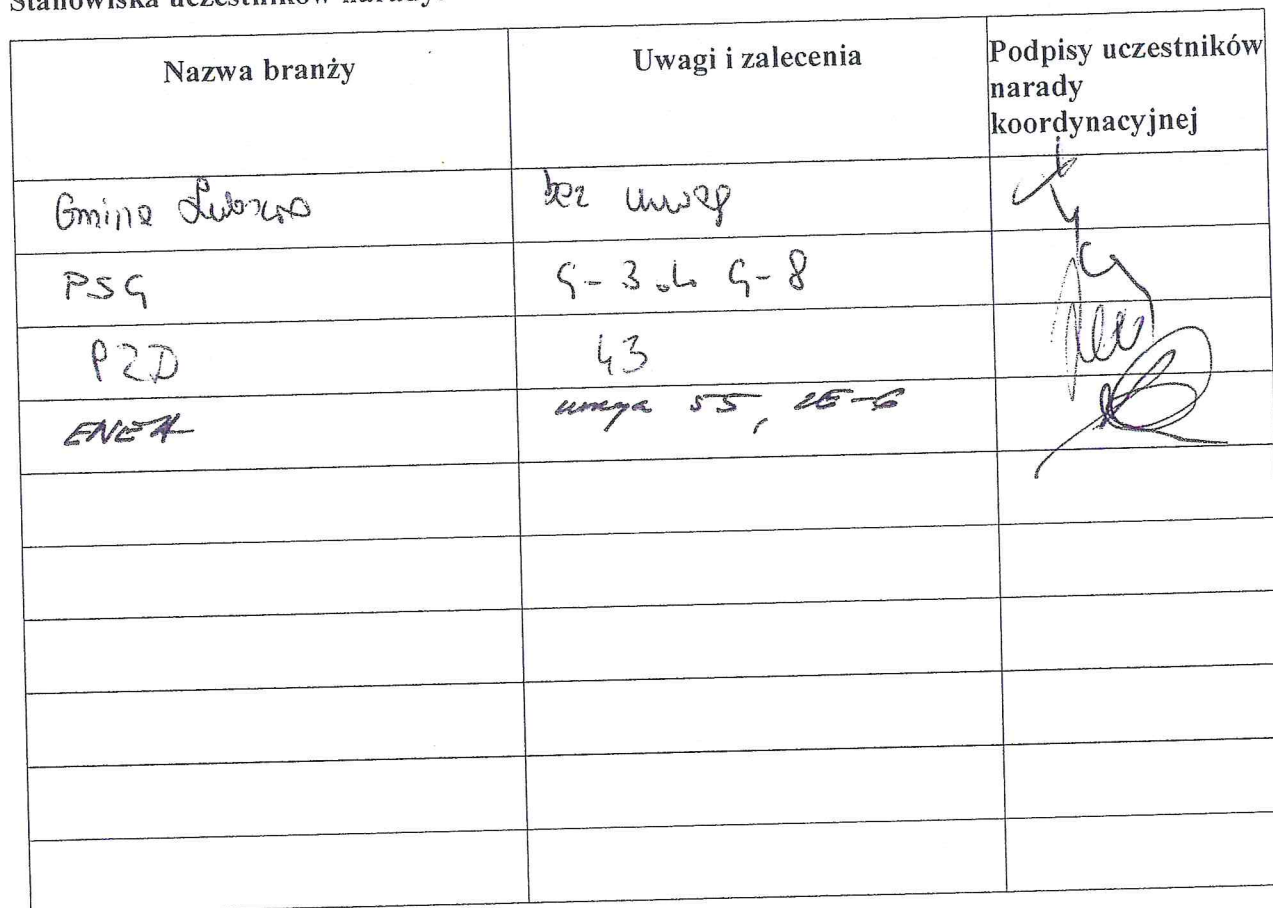 Stanowiska uczestników narady:
Nazwa branży
Uwagi i zalecenia
Podpisy uczestników
narady
koordynacyjnej
Gmina Lubrza
bez uwag
PSG
G-3 do G-8
PZD
43
ENEA
uwaga 55,